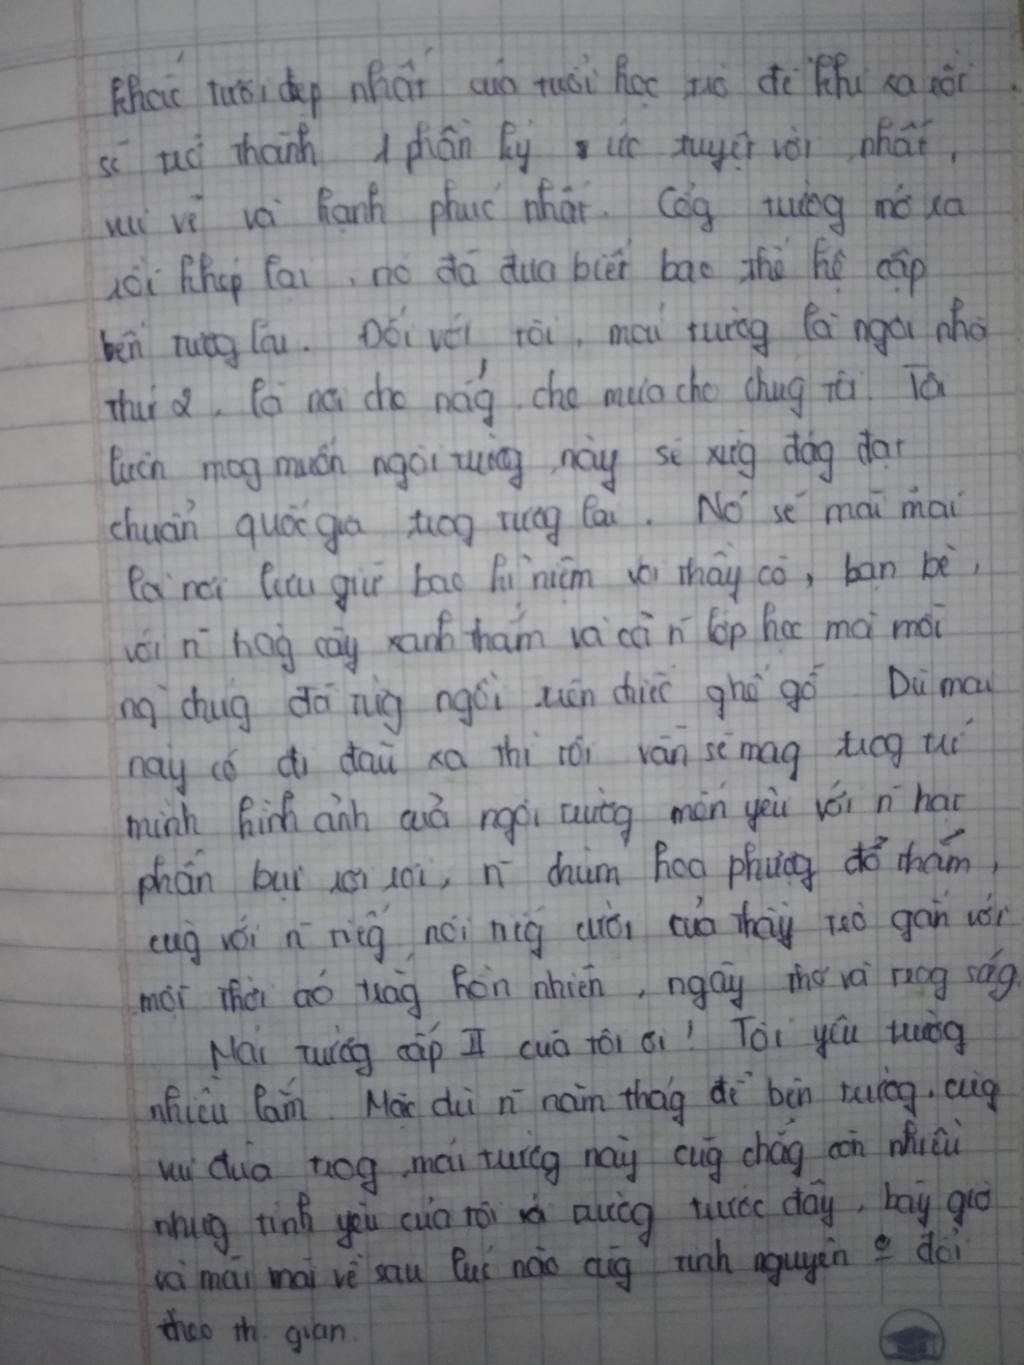 khắc tươi đẹp nhất của tuổi học trò để khi xa rồi
sẽ trở thành 1 phần ký ức tuyệt vời nhất,
vui vẻ và hạnh phúc nhất. Cổg trườg mở ra
rồi khép lại, nó đã đưa biết bao thế hệ cập
bến tươg lai. Đối với tôi, mái trườg là ngôi nhà
thứ 2, là nơi che nắg, che mưa cho chúg tôi. Tôi
luôn mog muốn ngôi trườg này sẽ xứg đág đạt
chuẩn quốc gia trog tươg lai. Nó sẽ mãi mãi
là nơi lưu giữ bao kỉ niệm với thầy cô, bạn bè,
với n~ hàg cây xanh thắm và cả n~ lớp học mà mỗi
ng` chúg đã từg ngồi trên chiếc ghế gỗ Dù mai
này có đi đâu xa thì tôi vẫn sẽ mag trog trí
mình hình ảnh của ngôi trườg mến yêu với n~ hạt
phấn bụi rơi rơi, n~ chùm hoa phượg đỏ thắm,
cùg với n~ tiếg nói tiếg cười của thầy trò gắn với
một thời áo trắg hồn nhiên, ngây thơ và trog ság.
Mái trườg cấp II của tôi ơi! Tôi yêu trườg
nhiều lắm. Mặc dù n~ năm thág để bên trườg, cùg
vui đùa trog mái trườg này cũg chẳg còn nhiều
nhưg tình yêu của tôi và trườg trước đây, bây giờ
và mãi mãi về sau lúc nào cũg tinh nguyên đổi
theo th. gian.